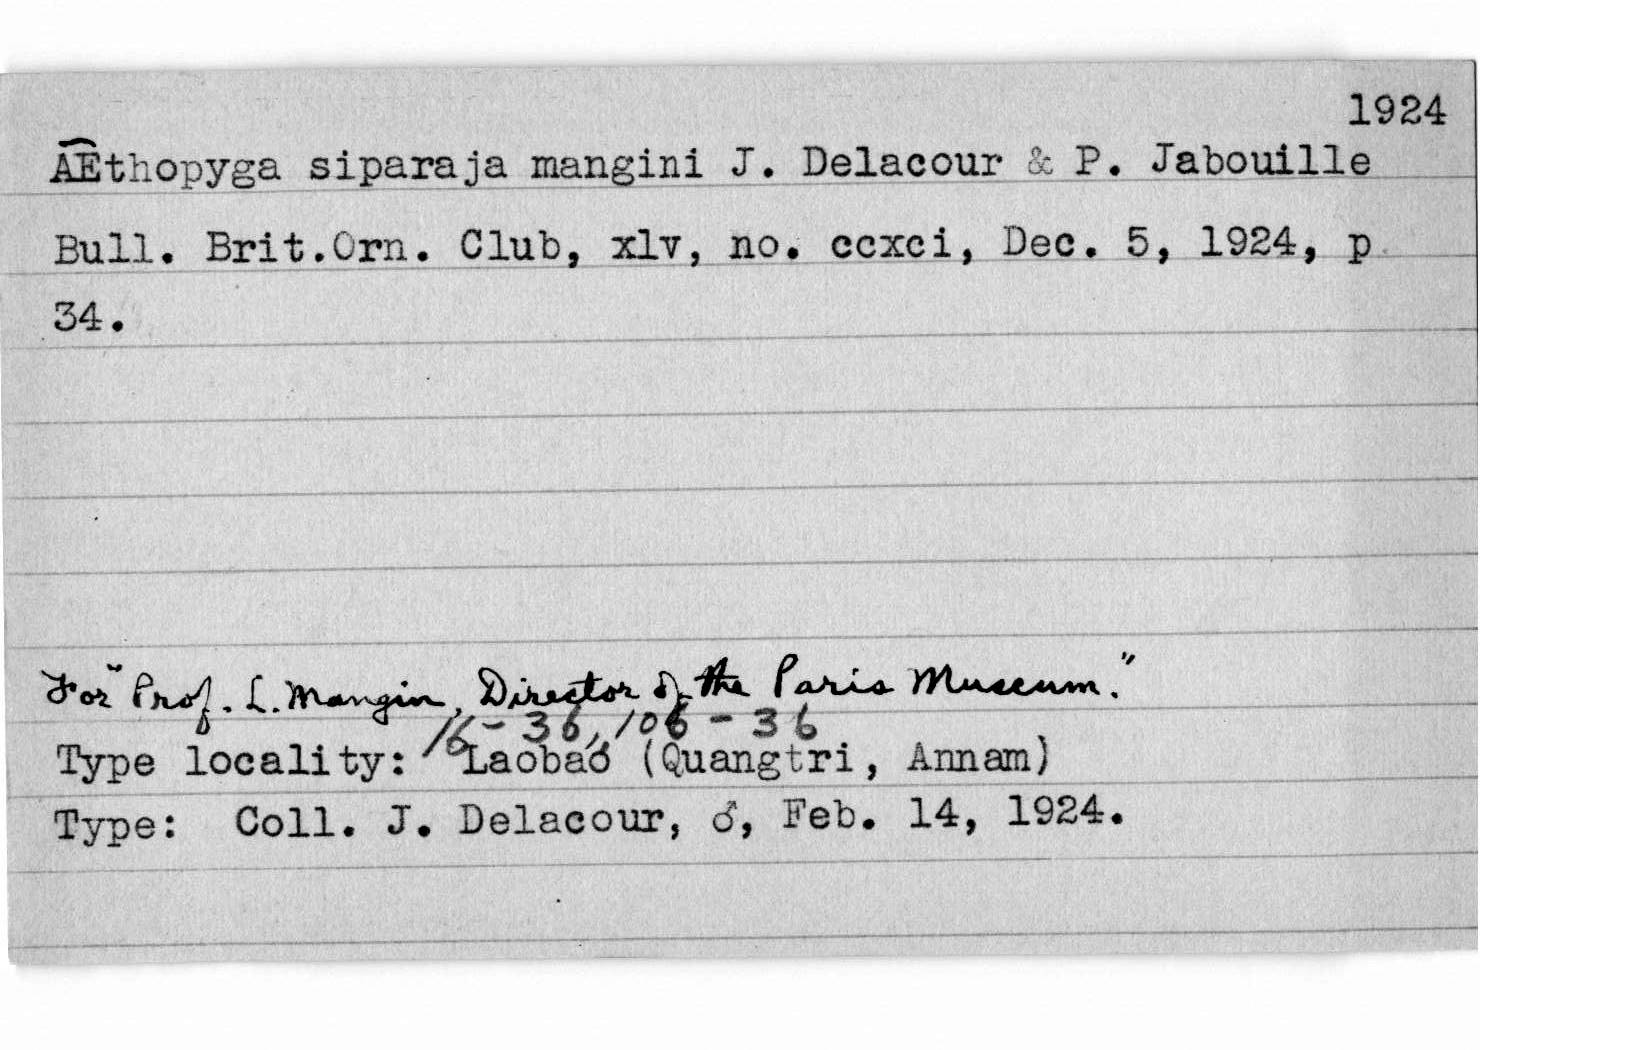 1924
Æthopyga siparaja mangini J. Delacour & P. Jabouille
Bull. Brit.Orn. Club, xlv, no. ccxci, Dec. 5, 1924, p.
34.
For "Prof. L. Mangin, Director of the Paris Museum."
16-36, 106-36
Type locality: Laobao (Quangtri, Annam)
Type: Coll. J. Delacour, ♂, Feb. 14, 1924.